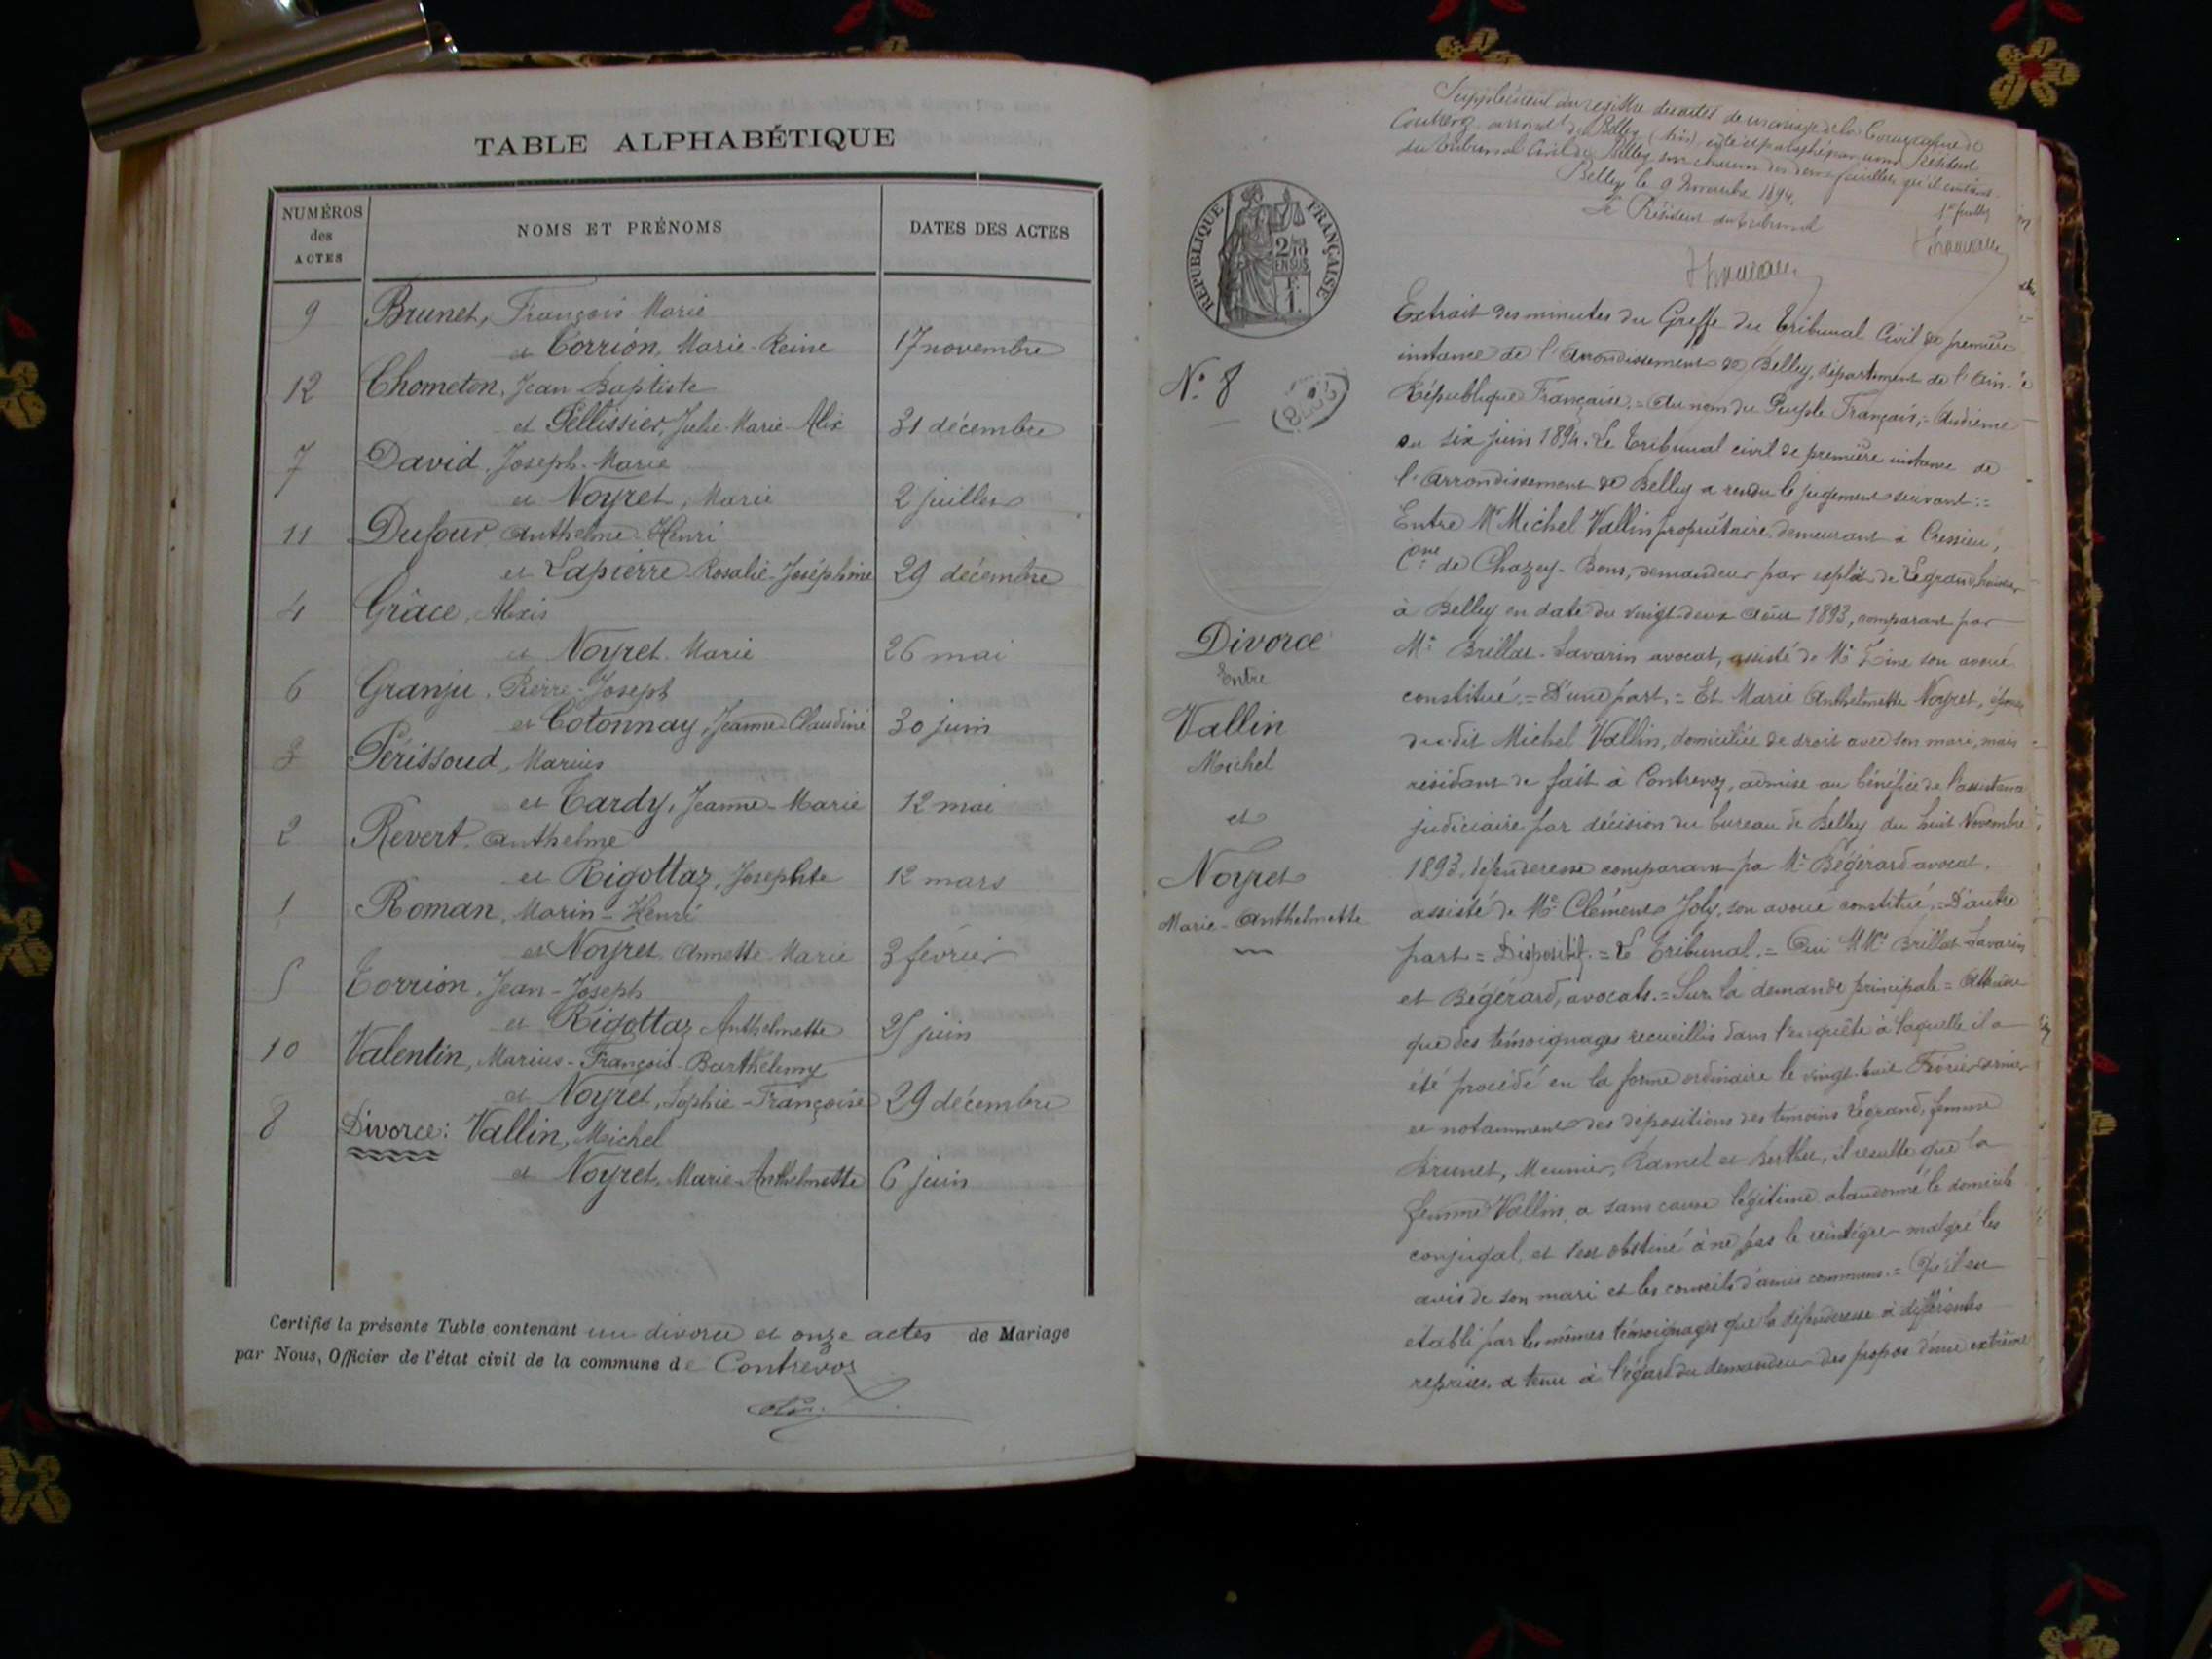 TABLE ALPHABÉTIQUE
NUMÉROS des ACTES
NOMS ET PRÉNOMS
DATES DES ACTES
9 Brunet, François Marie
et Corrion, Marie-Reine 17 novembre
12 Chometon, Jean Baptiste
et Pellissier, Julie-Marie-Alix 31 décembre
7 David, Joseph-Marie
et Noyret, Marie 2 juillet
11 Dufour, Anthelme-Henri
et Lapierre, Rosalie-Joséphine 29 décembre
4 Grâce, Alexis
et Noyret, Marie 26 mai
6 Granju, Pierre-Joseph
et Cotonnay, Jeanne-Claudine 30 juin
3 Périssoud, Marius
et Tardy, Jeanne-Marie 12 mai
2 Revert, Anthelme
et Rigottaz, Josephte 12 mars
1 Roman, Marin-Henri
et Noyret, Annette Marie 3 février
5 Corrion, Jean-Joseph
et Rigottaz Anthelmette 25 juin
10 Valentin, Marius-François-Barthélemy
et Noyret, Sophie-Françoise 29 décembre
8 Divorce: Vallin, Michel
et Noyret, Marie-Anthelmette 6 juin
Certifié la présente Table contenant un divorce et onze actes de Mariage
par Nous, Officier de l'état civil de la commune de Contrevoz
Supplément au registre des actes de mariage de la Commune de
Contrevoz, arrondt de Belley (Ain), coté et paraphé par nous Président
du tribunal Civil de Belley sur chacun des deux feuillets qu'il contient.
Belley le 9 Novembre 1894.
Le Président du tribunal
RÉPUBLIQUE FRANÇAISE
2/10 EN SUS
1F.
N° 8
Divorce
Entre
Vallin
Michel
et
Noyret
Marie-Anthelmette
Extrait des minutes du Greffe du Tribunal Civil de première
instance de l'arrondissement de Belley, département de l'Ain.=
République Française.= Au nom du Peuple Français,= Audience
du six juin 1894. Le Tribunal civil de première instance de
l'Arrondissement de Belley a rendu le jugement suivant:=
Entre Mr Michel Vallin propriétaire demeurant à Cressieu,
Cne de Chazey-Bons, demandeur par exploit de Legrand, huissier
à Belley en date du vingt-deux Août 1893, comparant par
Me Brillat-Savarin avocat, assisté de Me son avoué
constitué.= D'une part.= Et Marie Anthelmette Noyret, épouse
du dit Michel Vallin, domiciliée de droit avec son mari, mais
résidant de fait à Contrevoz, admise au bénéfice de l'assistance
judiciaire par décision du bureau de Belley du huit Novembre
1893, défenderesse comparant par Me Bégérard avocat,
assisté de Me Clément Joly, son avoué constitué,= D'autre
part = Dispositif.= Le Tribunal.= Oui MMes Brillat-Savarin
et Bégérard, avocats.= Sur la demande principale = Attendu
que des témoignages recueillis dans l'enquête à laquelle il a
été procédé en la forme ordinaire le vingt-huit Février dernier
et notamment des dépositions des témoins Legrand, femme
Brunet, Meunier, Ramel et Berthet, il résulte que la
femme Vallin a sans cause légitime abandonné le domicile
conjugal, et s'est obstiné à ne pas le réintégrer malgré les
avis de son mari et les conseils d'amis communs.= Qu'il est
établi par les mêmes témoignages que la défenderesse à différentes
reprises, a tenu à l'égard du demandeur des propos d'une extrême